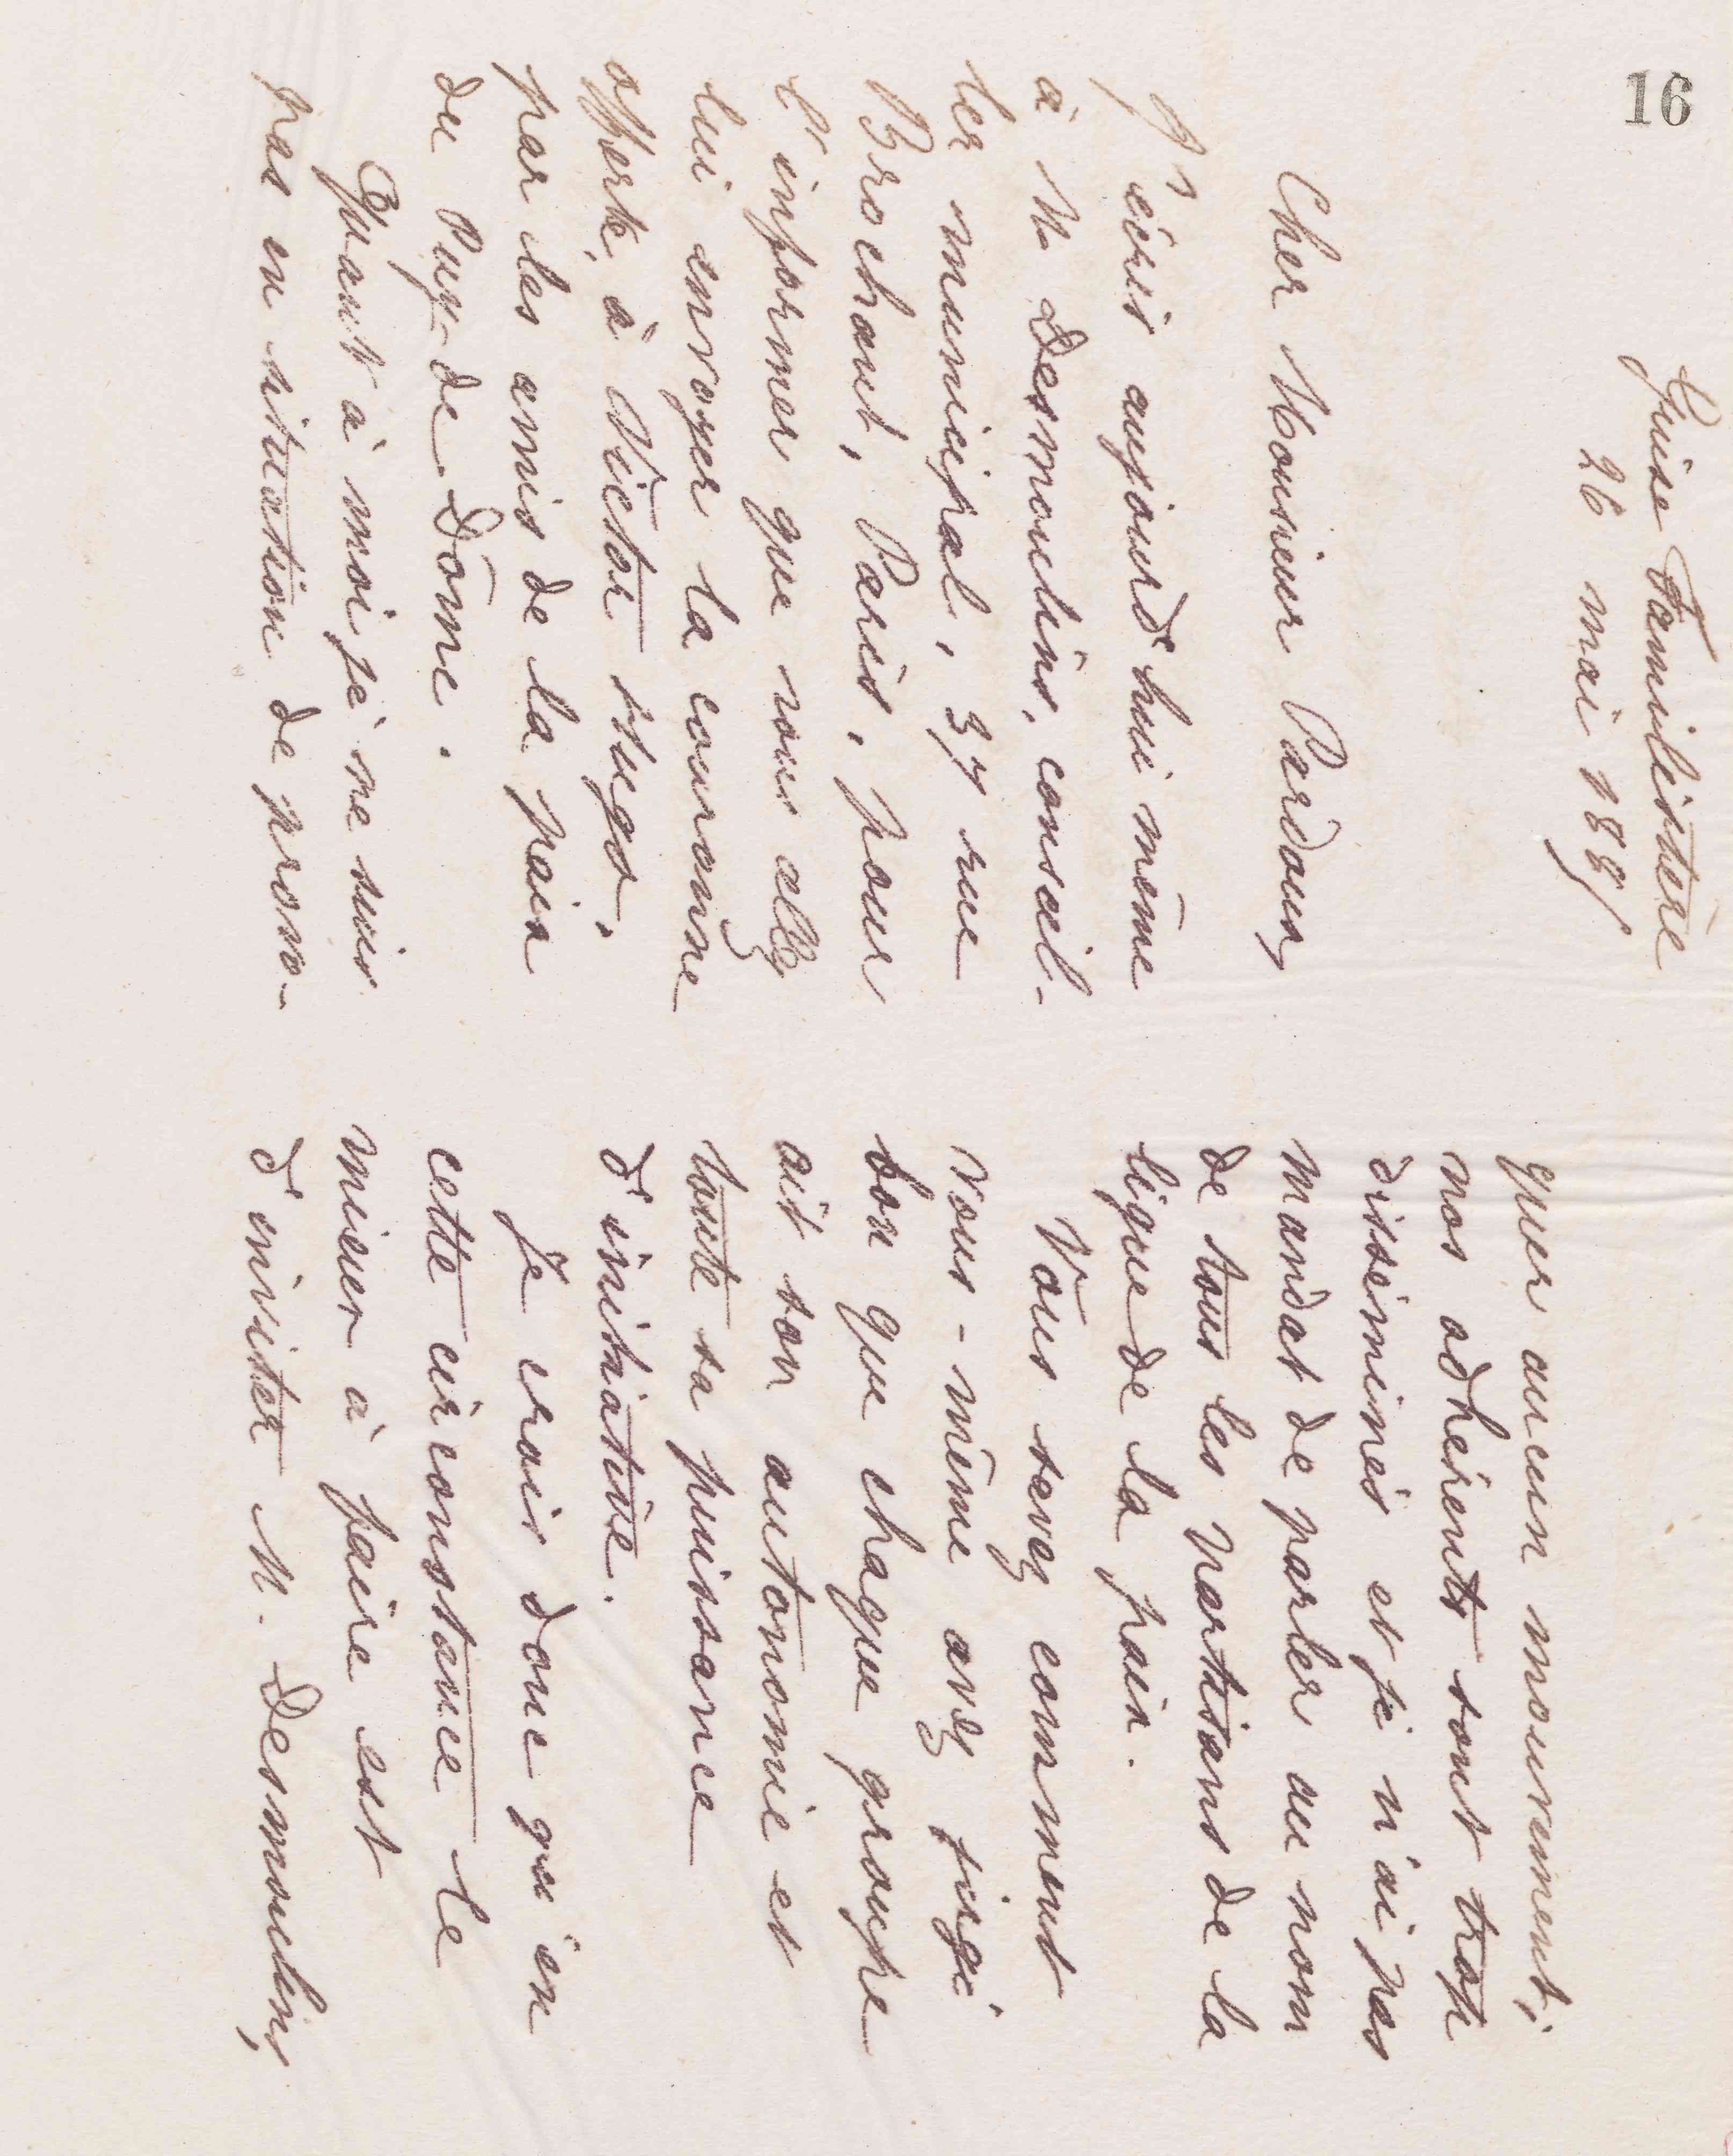 16
Guise Familistère
26 mai 1885
Cher Monsieur Pardoux,
J'écris aujourd'hui même
à M. Desmoulins, conseil-
ler municipal, 37 rue
Brochant, Paris, pour
l'informer que vous allez
lui envoyer la couronne
offerte, à Victor Hugo,
par les amis de la paix
du Puy-de-Dôme.
Quant à moi je ne suis
pas en situation de provo-
quer aucun mouvement;
nos adhérents sont trop
disséminés et je n'ai pas
mandat de parler au nom
de tous les partisans de la
ligue de la paix.
Vous savez comment
vous-même avez
bon que chaque groupe
ait son autonomie et
toute sa puissance
d'initiative.
Je crois donc qu'en
cette circonstance le
mieux à faire est
d'inviter M. Desmoulins,